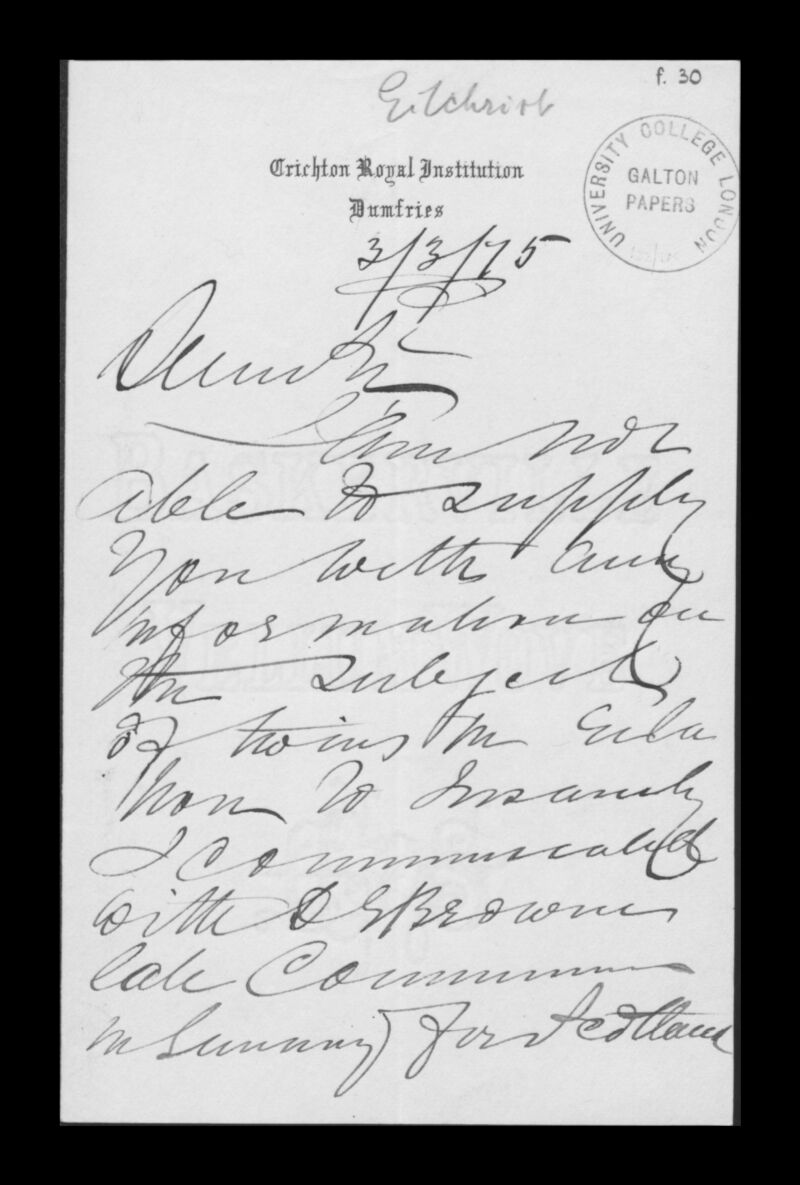 f. 30
Gilchrist
Crichton Royal Institution
Dumfries
UNIVERSITY COLLEGE LONDON
GALTON
PAPERS
3/3/75
Dear Sir
I am not
able to supply
you with any
information on
the subject
of twins in rela
tion to Insanity
I communicated
with Dr Browne
late Commissioner
in Lunacy for Scotland